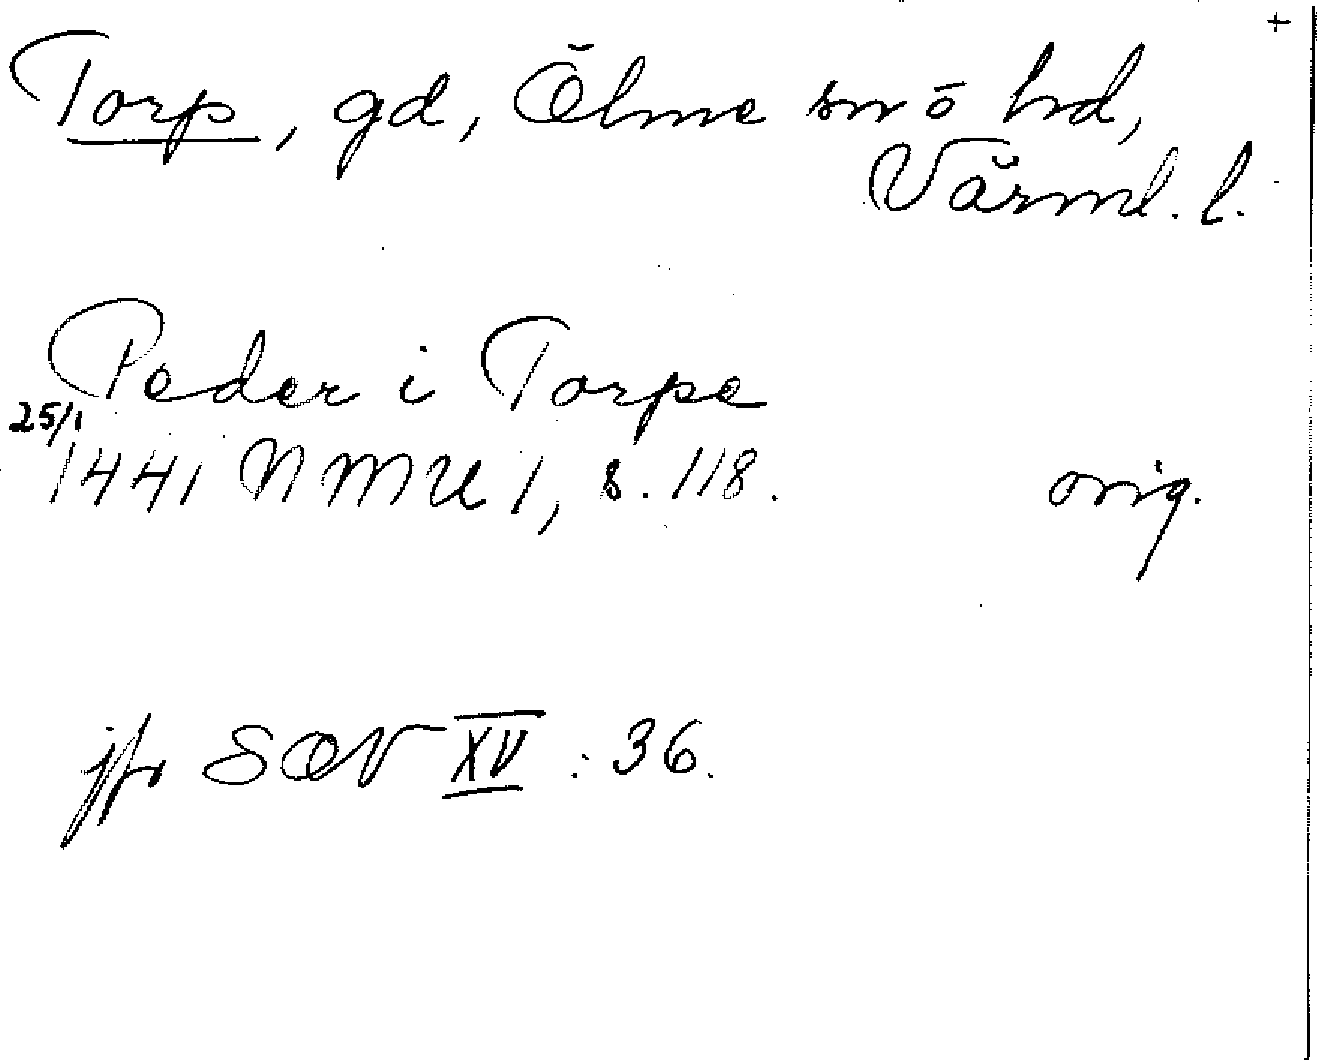 +
Torp, gd, Ölme sn ö hd,
Värml. l.
Peder i Torpe
25/1
1441 NMU 1, s. 118. orig.
jfr SOV XV : 36.